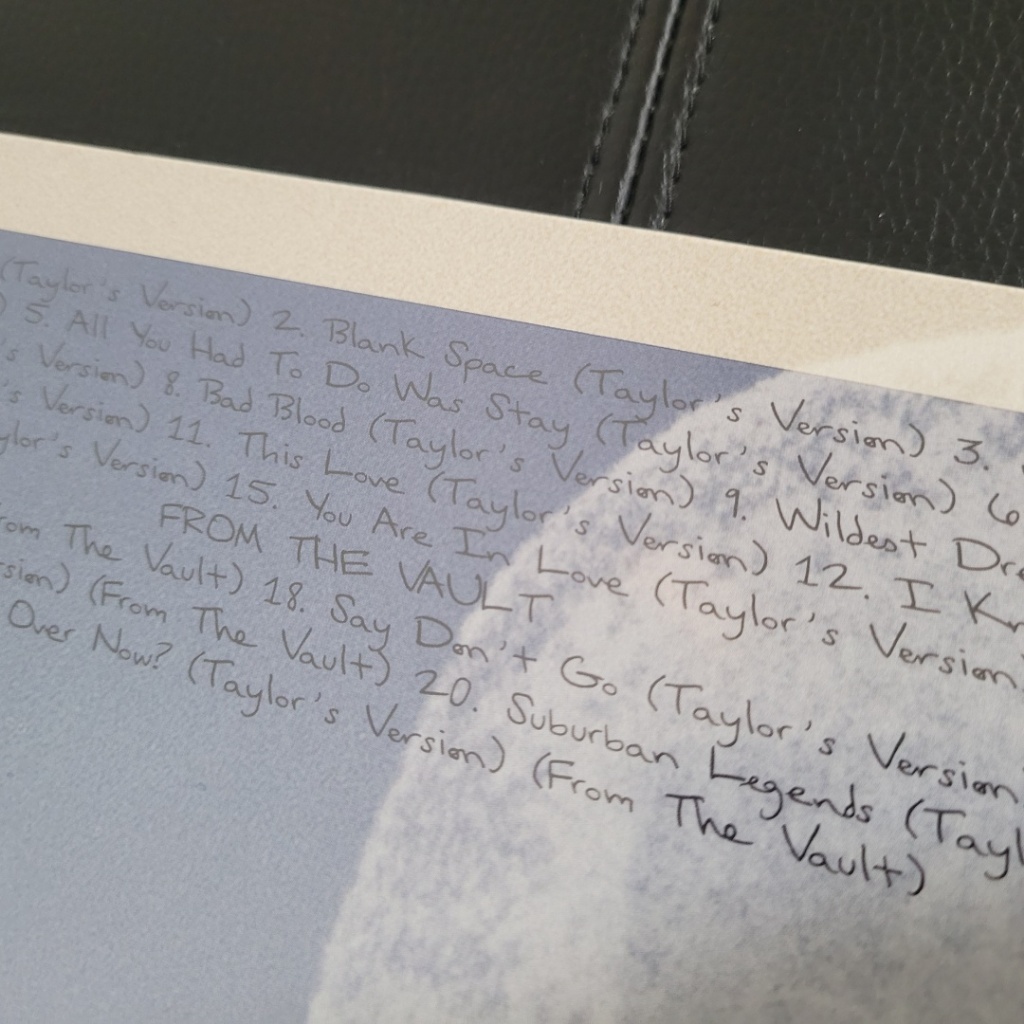 (Taylor's Version) 2. Blank Space (Taylor's Version) 3.
) 5. All You Had To Do Was Stay (Taylor's Version) 6
's Version) 8. Bad Blood (Taylor's Version) 9. Wildest Dre
's Version) 11. This Love (Taylor's Version) 12. I Kn
ylor's Version) 15. You Are In Love (Taylor's Version)
FROM THE VAULT
rom The Vault) 18. Say Don't Go (Taylor's Version)
sion) (From The Vault) 20. Suburban Legends (Tayl
Over Now? (Taylor's Version) (From The Vault)